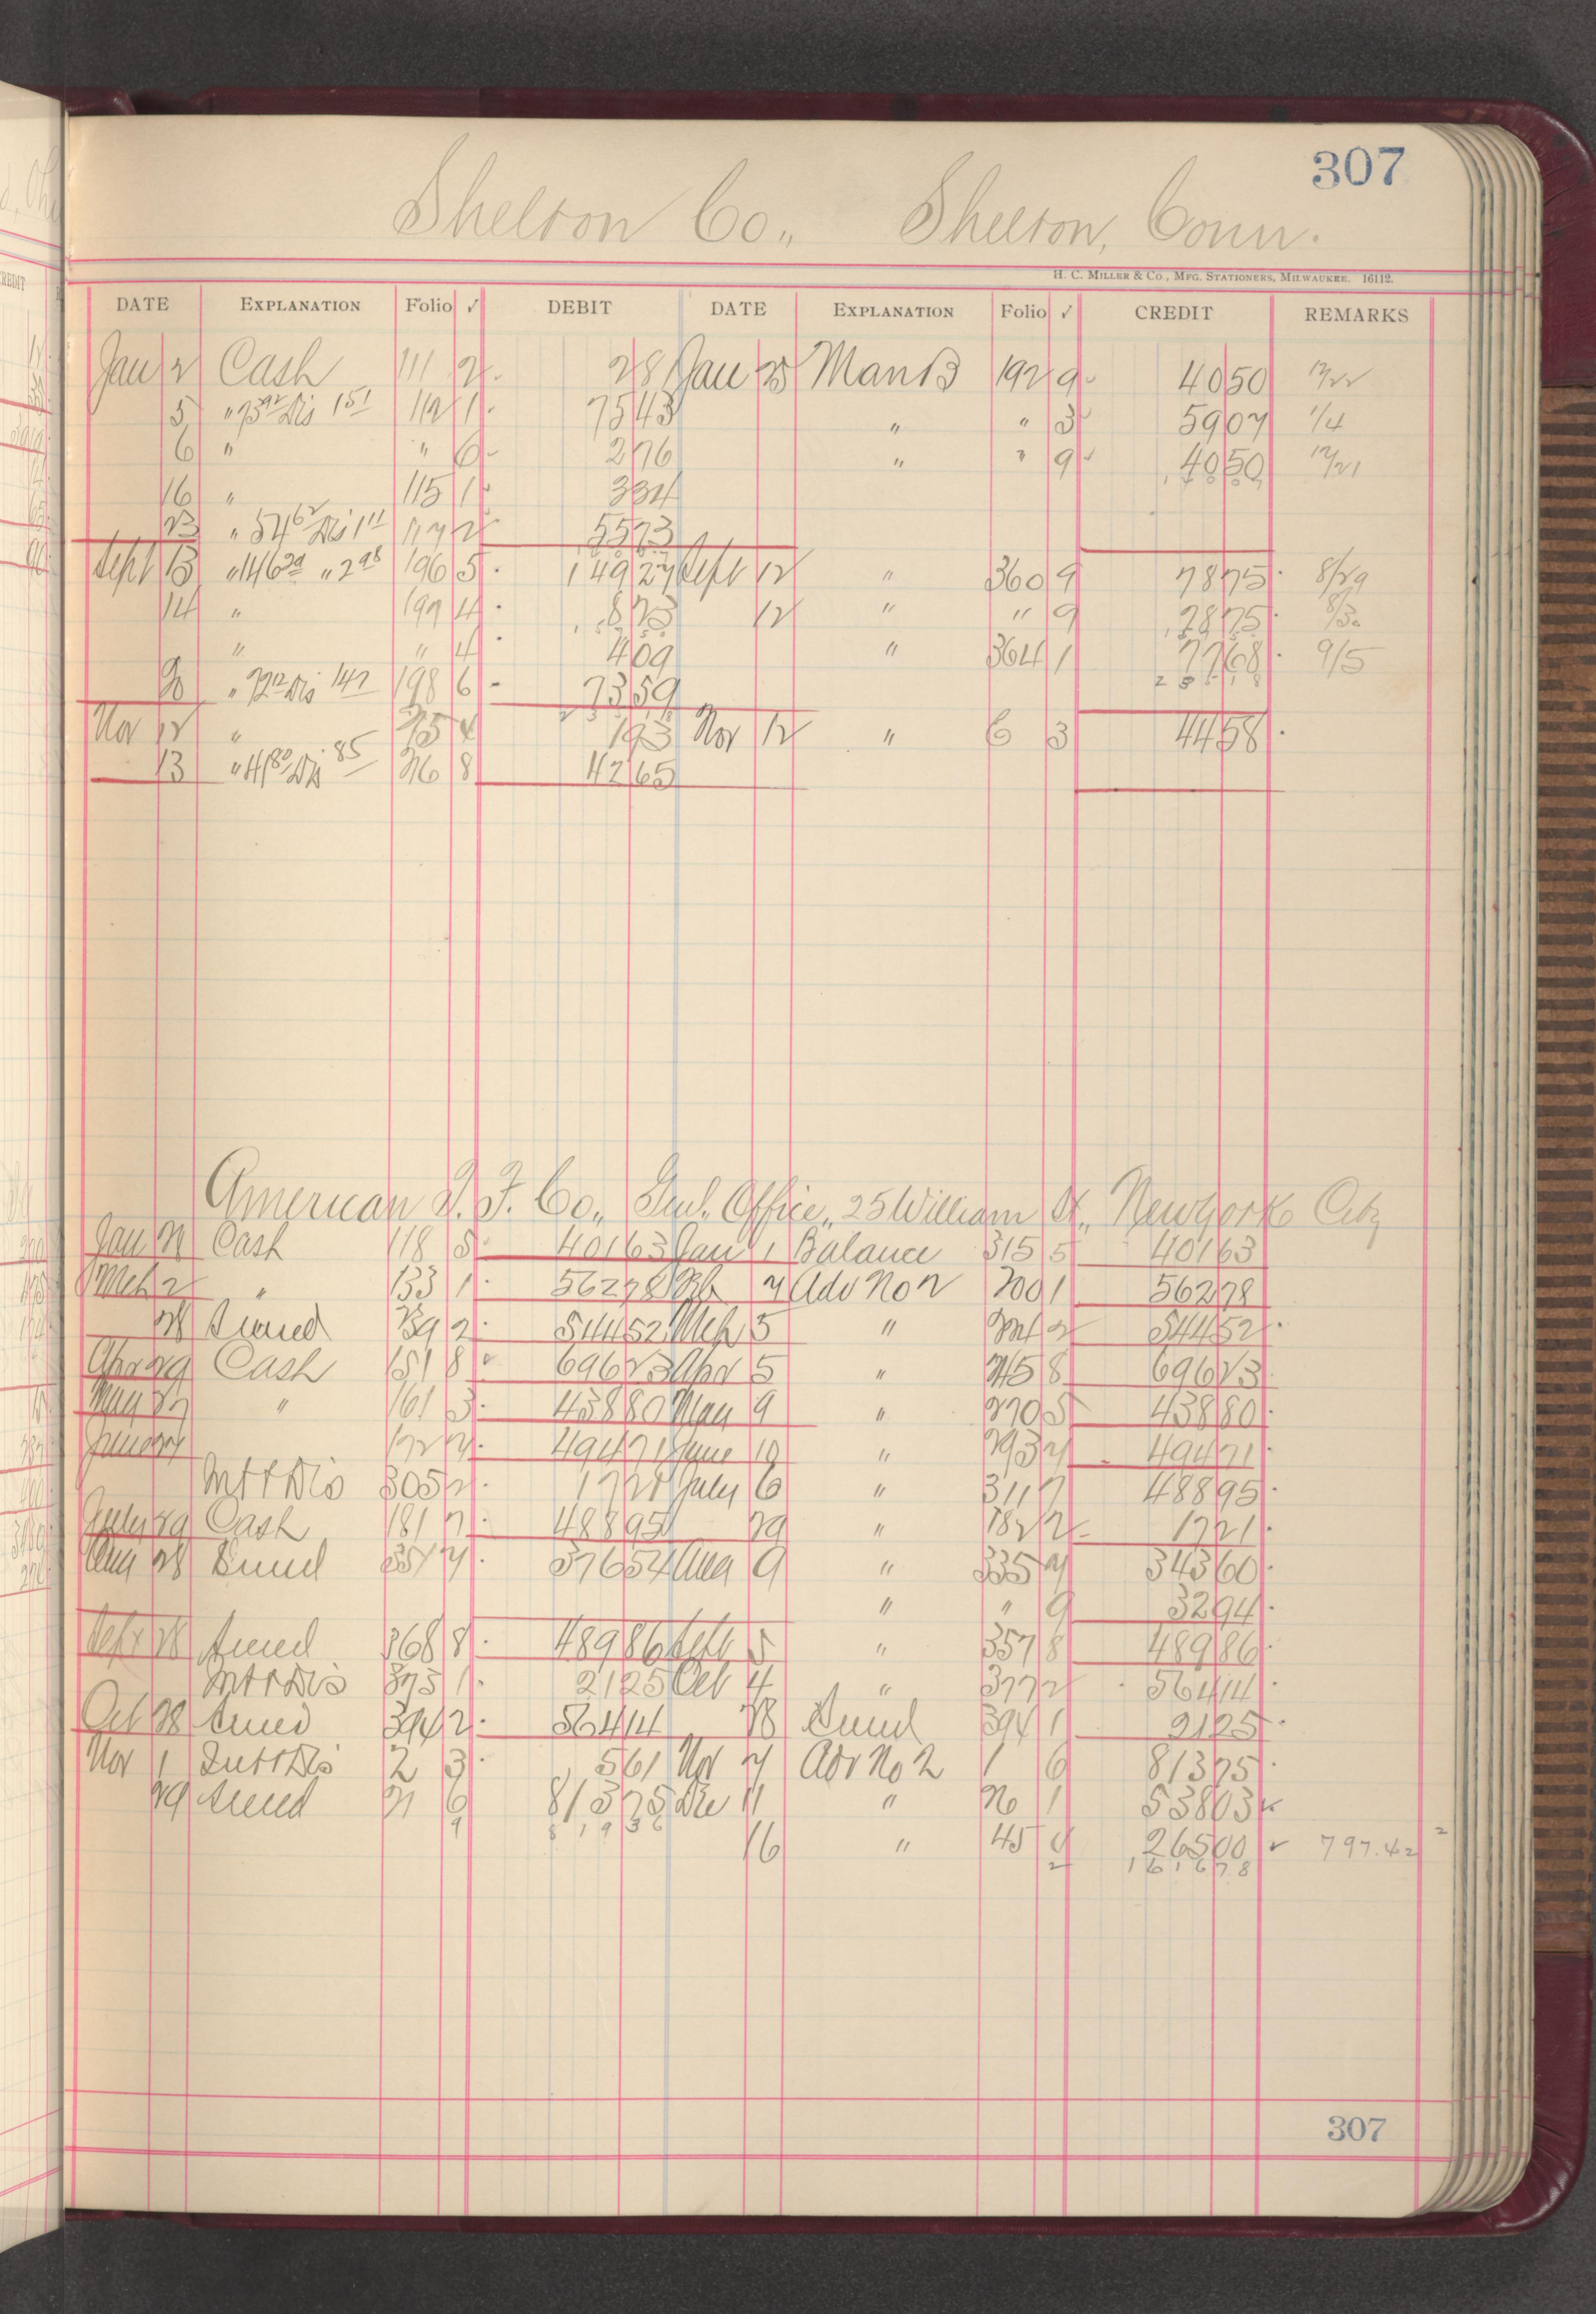 307
Shelton Co., Shelton, Conn.
H. C. Miller & Co., Mfg. Stationers, Milwaukee. 16112.
DATE Explanation Folio ✓ DEBIT DATE Explanation Folio ✓ CREDIT REMARKS
Jan 2 Cash 111 2 28 Jan 25 Man B 192 9 40 50 12/22
5 " 73 92 Dis 1 51 112 1 75 43 " " 3 59 07 1/4
6 " " 6 2 76 " " 9 40 50 12/21
16 " 115 1 3 34
23 " 54 62 Dis 1 11 117 2 55 73
Sept 13 " 146 29 " 2 98 196 5 149 27 Sept 12 " 360 9 78 75 8/29
14 " 197 4 8 23 12 " " 9 78 75 8/30
" " 4 4 09 " 364 1 77 68 9/5
20 " 72 12 Dis 1 47 198 6 73 59
Nov 12 " 25 4 1 93 Nov 12 " 6 3 44 58
13 " 41 80 Dis 85 26 8 42 65
American T. F. Co., Genl. Office, 25 William St., New York City
Jan 21 Cash 118 5 401 63 Jan 1 Balance 315 5 401 63
Mch 2 " 133 1 562 78 Feb 7 Adv No 2 200 1 562 78
28 239 2 544 52 Mch 5 " 2 544 52
Apr 29 Cash 151 8 696 23 Apr 5 " 245 8 696 23
May 27 " 161 3 438 80 May 9 " 270 5 438 80
June 27 172 7 494 71 June 10 " 293 7 494 71
Dis 305 2 17 21 July 6 " 311 7 488 95
July 29 Cash 181 7 488 95 29 " 182 2 17 21
Aug 28 351 7 376 54 Aug 9 " 335 7 343 60
" " 9 32 94
Sept 28 368 8 489 86 Sept 5 " 357 8 489 86
Dis 373 1 21 25 Oct 4 " 377 2 564 14
Oct 28 394 2 564 14 28 394 1 21 25
Nov 1 Dis 2 3 5 61 Nov 7 Adv No 2 1 6 813 75
29 21 6 813 75 Dec 11 " 26 1 538 03
9 8 19 36 16 " 45 9 265 00 797.42 2
2 1 6 1 6 7 8
307